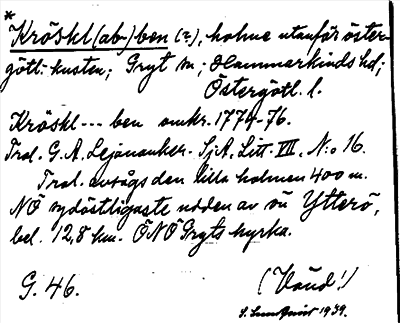 *
Kröskl(ab-)ben (?), holme utanför öster-
götl. kusten; Gryt sn; Hammarkinds hd;
Östergötl. l.
Kröskl--- ben omkr. 1774-76.
Trol. G. A. Lejonanker. SjA, Litt. VII, N:o 16.
Trol. avsågs den lilla holmen 400 m.
NÖ sydöstligaste udden av ön Ytterö,
bel. 12,8 km. ÖNÖ Gryts kyrka.
G. 46.
(Vöud!)
1939.